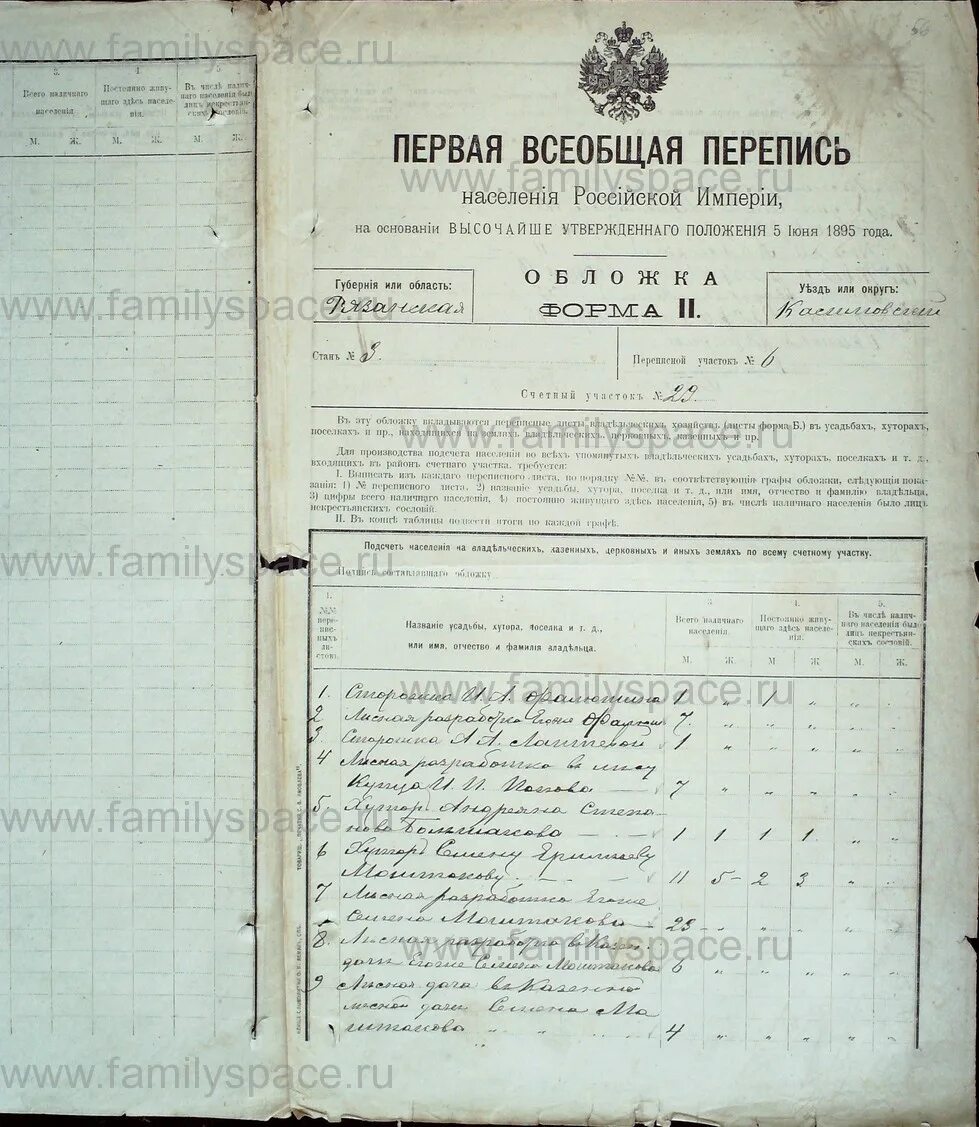 www.familyspace.ru
56
3.
4.
5.
Всего наличнаго населенія.
Постоянно живу-
щаго здѣсь населе-
нія.
Въ числѣ налич-
наго населенія было
лицъ некрестьян-
скихъ сословій.
М. Ж. М. Ж. М. Ж.
ПЕРВАЯ ВСЕОБЩАЯ ПЕРЕПИСЬ
населенія Россійской Имперіи,
на основаніи ВЫСОЧАЙШЕ УТВЕРЖДЕННАГО ПОЛОЖЕНІЯ 5 Іюня 1895 года.
Губернія или область:
Рязанская
ОБЛОЖКА
ФОРМА II.
Уѣздъ или округъ:
Касимовскій
Станъ № 3.
Переписной участокъ № 6
Счетный участокъ № 29.
Въ эту обложку вкладываются переписные листы владѣльческихъ хозяйствъ (листы форма Б.) въ усадьбахъ, хуторахъ,
поселкахъ и пр., находящихся на земляхъ владѣльческихъ, церковныхъ, казенныхъ и пр.
Для производства подсчета населенія во всѣхъ упомянутыхъ владѣльческихъ усадьбахъ, хуторахъ, поселкахъ и т. д.,
входящихъ въ район счетнаго участка, требуется:
I. Выписать изъ каждаго переписного листа, по порядку №№, въ соотвѣтствующія графы обложки, слѣдующія пока-
занія: 1) № переписного листа, 2) названіе усадьбы, хутора, поселка и т. д., или имя, отчество и фамилію владѣльца,
3) цифры всего наличнаго населенія, 4) постоянно живущаго здѣсь населенія, 5) въ числѣ наличнаго населенія было лицъ
некрестьянскихъ сословій.
II. Въ концѣ таблицы подвести итоги по каждой графѣ.
Подсчетъ населенія на владѣльческихъ, казенныхъ, церковныхъ и иныхъ земляхъ по всему счетному участку.
Подпись составлявшаго обложку
1.
№№
пере-
писныхъ
ли-
стовъ.
2
Названіе усадьбы, хутора, поселка и т. д.,
или имя, отчество и фамилія владѣльца.
3
Всего наличнаго
населенія.
4.
Постоянно живу-
щаго здѣсь населе-
нія.
5.
Въ числѣ налич-
наго населенія было
лицъ некрестьян-
скихъ сословій.
М. Ж. М. Ж. М. Ж.
1. Сторожка И. А. 1 „ 1 „ „
2 Лѣсная разработка Егоже 7 „ „ „ „
3. Сторожка А. А. 1 „ „ „ „
4 Лѣсная разработка въ лѣсу
Купца И. И. Попова 7 „ „ „ „
5. Хуторъ Андреяна Степа-
нова Большакова 1 1 1 1 „
6 Хуторъ Семену
Моштакову 11 5 2 3 „
7 Лѣсная разработка Егоже
Семена Моштакова 23 „ „ „ „
8. Лѣсная разработка въ Казен.
дачи Егоже Семена Моштакова 6 „ „ „ „
9 Лѣсная дача въ Казенной
лѣсной дачи Семена Мо
штакова 4 „ „ „ „